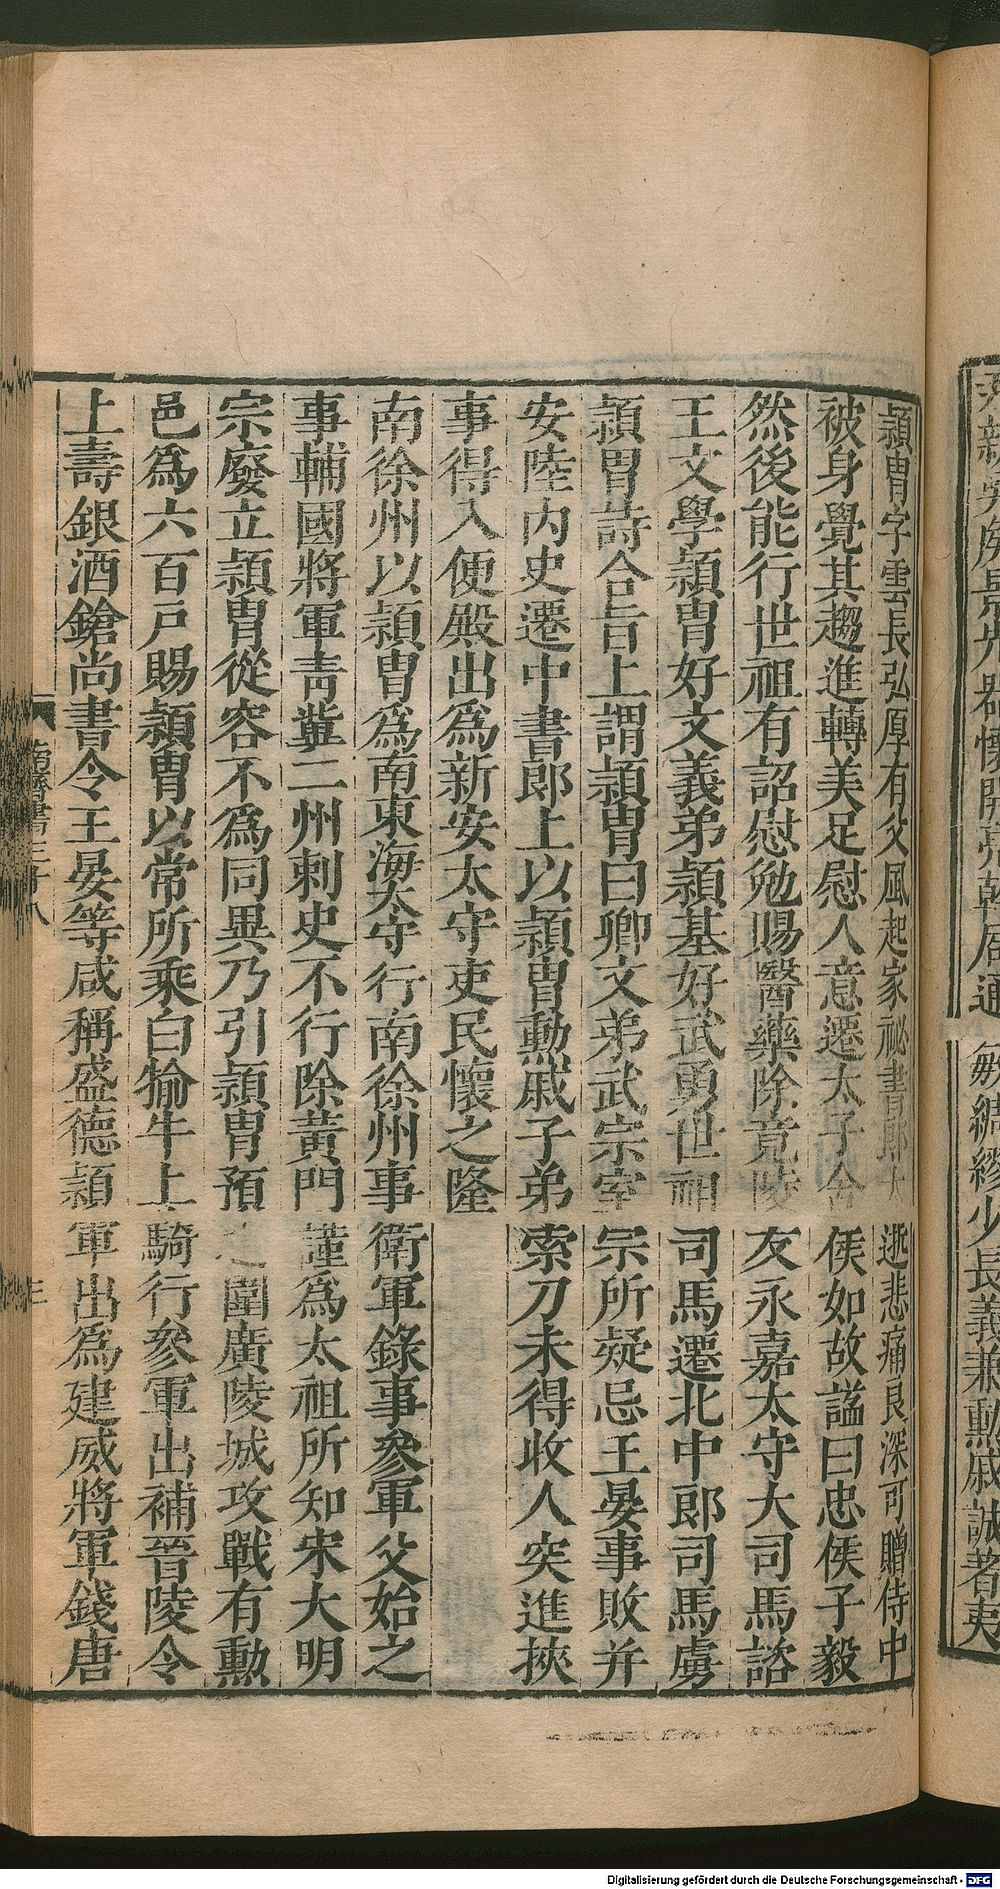 新吳侯景先器懷開亮幹局通敏綢繆少長義兼勳戚誠著夷
頴胄字雲長弘厚有父風起家祕書郎太逝悲痛良深可贈侍中
被身覺其趨進轉美足慰人意遷太子舍侯如故謚曰忠侯子毅
然後能行世祖有詔慰勉賜醫藥除竟陵友永嘉太守大司馬諮
王文學頴胄好文義弟頴基好武勇世祖司馬遷北中郎司馬虜
頴胄詩合旨上謂頴胄曰卿文弟武宗室宗所疑忌王晏事敗并
安陸内史遷中書郎上以頴胄勳戚子弟索刀未得收人突進挾
事得入便殿出爲新安太守吏民懷之隆
南徐州以頴胄爲南東海太守行南徐州事衛軍錄事參軍父始之
事輔國將軍青冀二州刺史不行除黄門謹爲太祖所知宋大明
宗廢立頴胄從容不爲同異乃引頴胄預之圍廣陵城攻戰有勳
邑爲六百戸賜頴胄以常所乘白牏牛上騎行參軍出補晉陵令
上壽銀酒鎗尚書令王晏等咸稱盛德頴軍出爲建威將軍錢唐
南齊書三十八
三
Digitalisierung gefördert durch die Deutsche Forschungsgemeinschaft - DFG